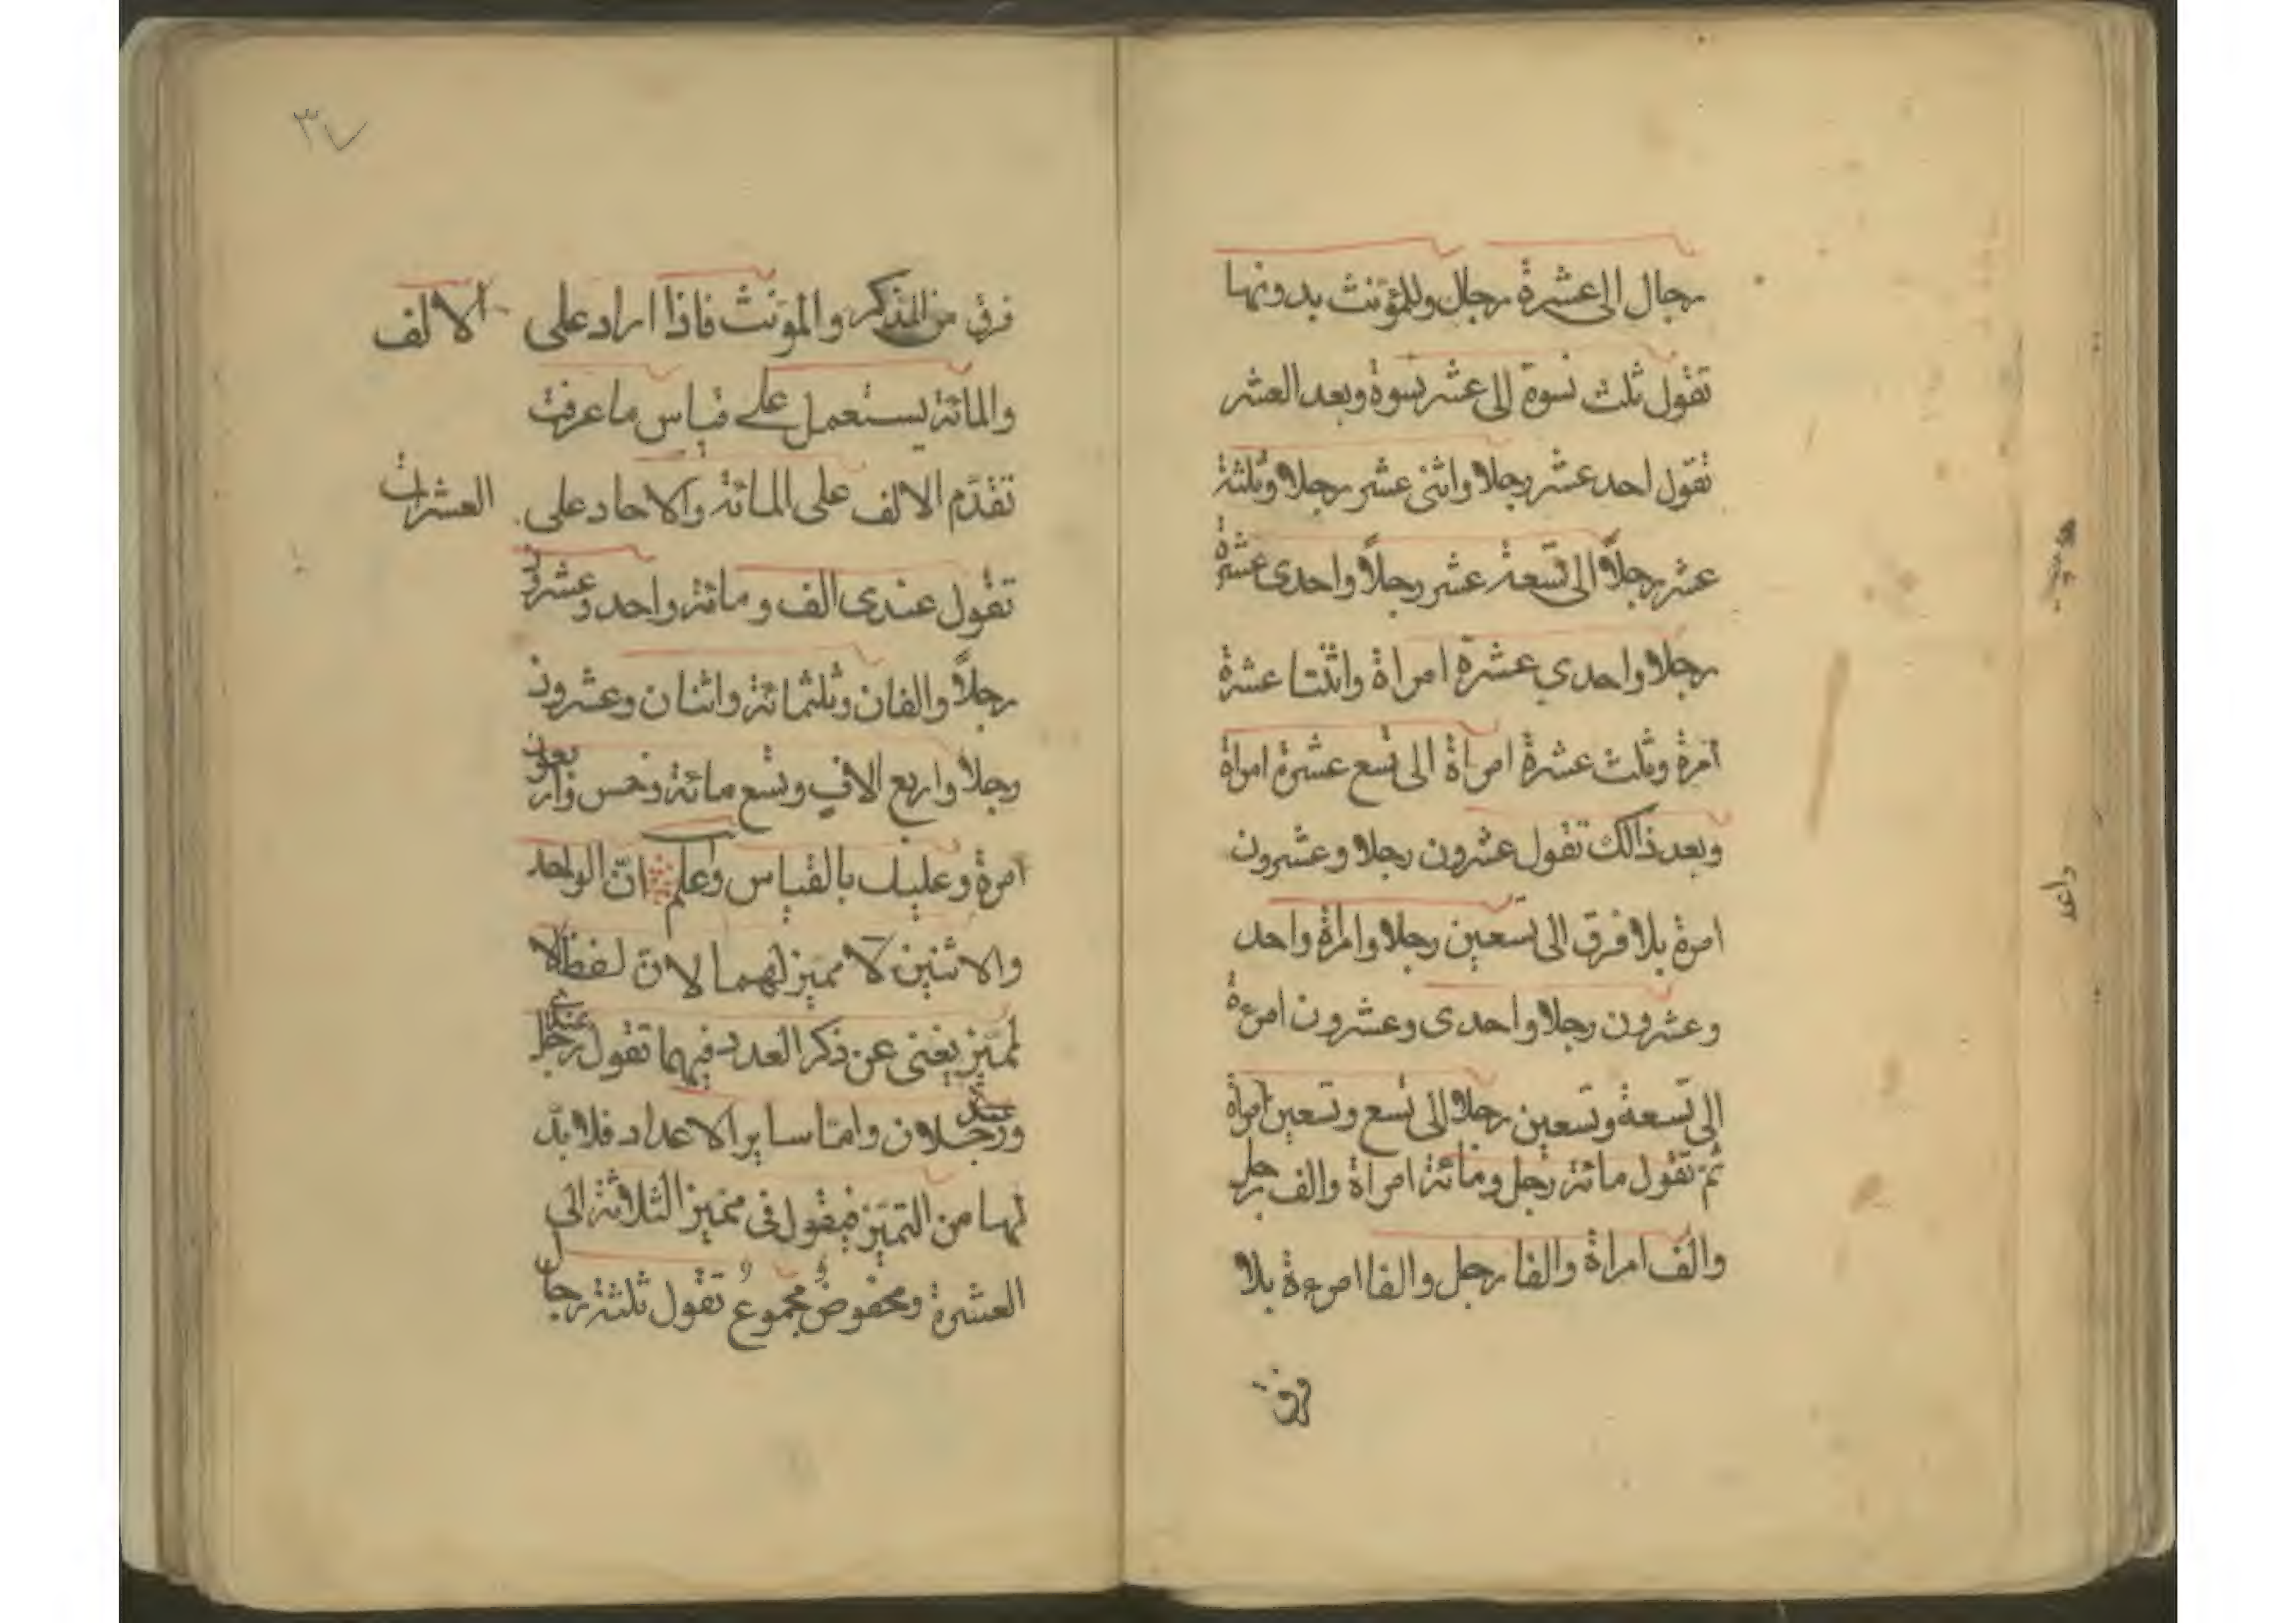 رجال الى عشرة رجال وللمؤنث بدونها
تقول ثلث نسوة الى عشر نسوة وبعد العشر
تقول احد عشر رجلا واثنى عشر رجلا وثلثة
عشر رجلاً الى تسعة عشر رجلاً واحدى عشرة
رجلا واحدي عشرة امراة واثنتا عشرة
امرة وثلث عشرة امراة الى تسع عشرة امراة
وبعد ذالك تقول عشرون رجلا وعشرون
امرة بلا فرق الى تسعين رجلا وامراة واحد
وعشرون رجلا واحدى وعشرون امرءة
الى تسعة وتسعين رجلا الى تسع وتسعين امراة
ثم تقول مائة رجل ومائة امراة والف رجل
والف امراة والفا رجل والفا امرءة بلا
فرق
٣٧
فرق من المذكر والمؤنث فاذا اراد على الالف
والمائة يستعمل على قياس ما عرفت
تقدّم الالف على المائة والاحاد على العشرات
تقول عندى الف ومائة واحد وعشرون
رجلاً والفان وثلثمائة واثنان وعشرون
رجلا واربع الاف وتسع مائة وخمس واربعون
امرة وعليك بالقياس واعلم انّ الواحد
والاثنين لا مميز لهما لانّ لفظ الا
لمميّز يغنى عن ذكر العدد فيهما تقول عندى رجل
وعندى رجلان وامّا ساير الاعداد فلا بدّ
لها من التميّز فيقول فى مميز الثلاثة الى
العشرة ومخفوض مجموع تقول ثلثة رجال